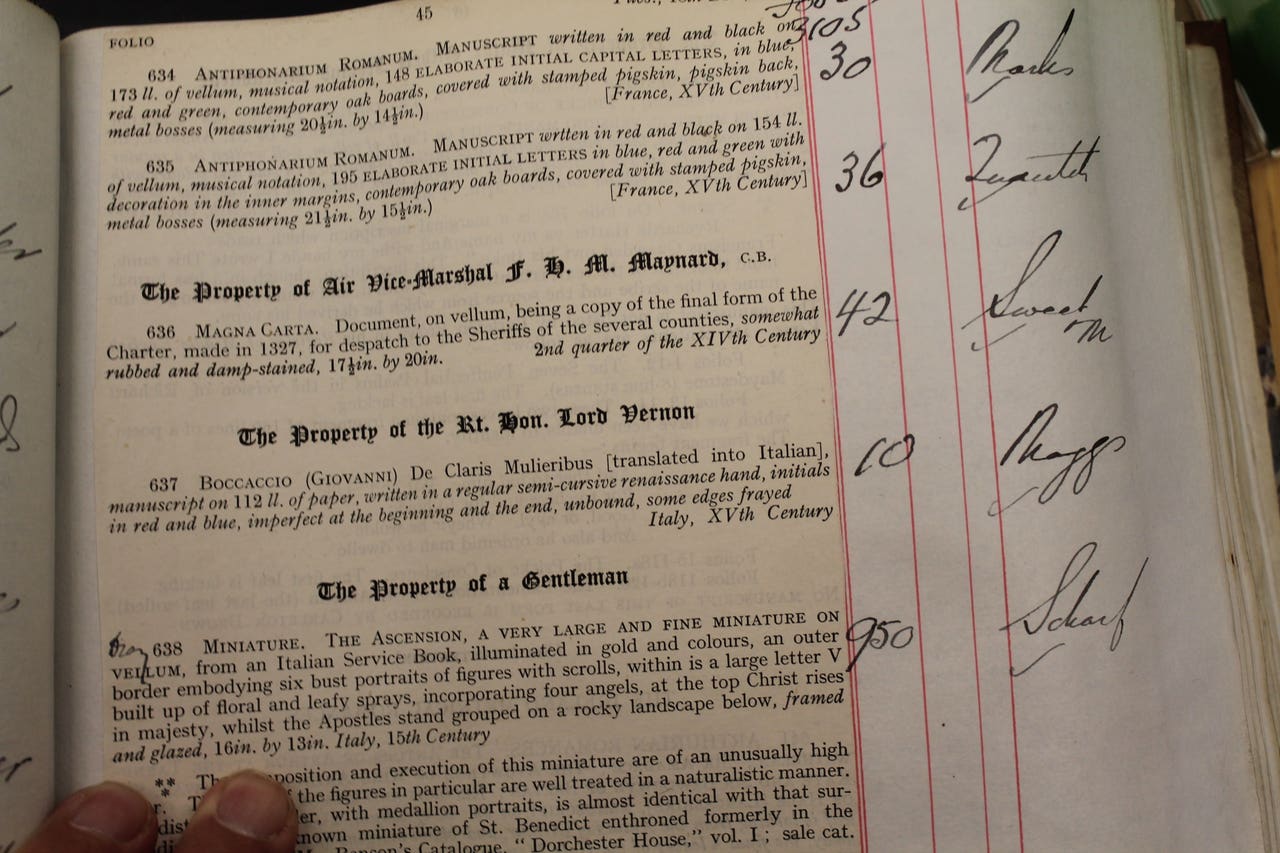 45
FOLIO
3105
634 ANTIPHONARIUM ROMANUM. MANUSCRIPT written in red and black on
173 ll. of vellum, musical notation, 148 ELABORATE INITIAL CAPITAL LETTERS, in blue,
red and green, contemporary oak boards, covered with stamped pigskin, pigskin back,
metal bosses (measuring 20½in. by 14½in.) [France, XVth Century]
30 Marks
635 ANTIPHONARIUM ROMANUM. MANUSCRIPT wrtten in red and black on 154 ll.
of vellum, musical notation, 195 ELABORATE INITIAL LETTERS in blue, red and green with
decoration in the inner margins, contemporary oak boards, covered with stamped pigskin,
metal bosses (measuring 21½in. by 15½in.) [France, XVth Century]
36
The Property of Air Vice-Marshal F. H. M. Maynard, C.B.
636 MAGNA CARTA. Document, on vellum, being a copy of the final form of the
Charter, made in 1327, for despatch to the Sheriffs of the several counties, somewhat
rubbed and damp-stained, 17½in. by 20in. 2nd quarter of the XIVth Century
42 Sweet M
The Property of the Rt. Hon. Lord Vernon
637 BOCCACCIO (GIOVANNI) De Claris Mulieribus [translated into Italian],
manuscript on 112 ll. of paper, written in a regular semi-cursive renaissance hand, initials
in red and blue, imperfect at the beginning and the end, unbound, some edges frayed
Italy, XVth Century
10 Maggs
The Property of a Gentleman
638 MINIATURE. THE ASCENSION, A VERY LARGE AND FINE MINIATURE ON
VELLUM, from an Italian Service Book, illuminated in gold and colours, an outer
border embodying six bust portraits of figures with scrolls, within is a large letter V
built up of floral and leafy sprays, incorporating four angels, at the top Christ rises
in majesty, whilst the Apostles stand grouped on a rocky landscape below, framed
and glazed, 16in. by 13in. Italy, 15th Century
950 Scharf
*** position and execution of this miniature are of an unusually high
the figures in particular are well treated in a naturalistic manner.
with medallion portraits, is almost identical with that sur-
known miniature of St. Benedict enthroned formerly in the
Catalogue, "Dorchester House," vol. I; sale cat.